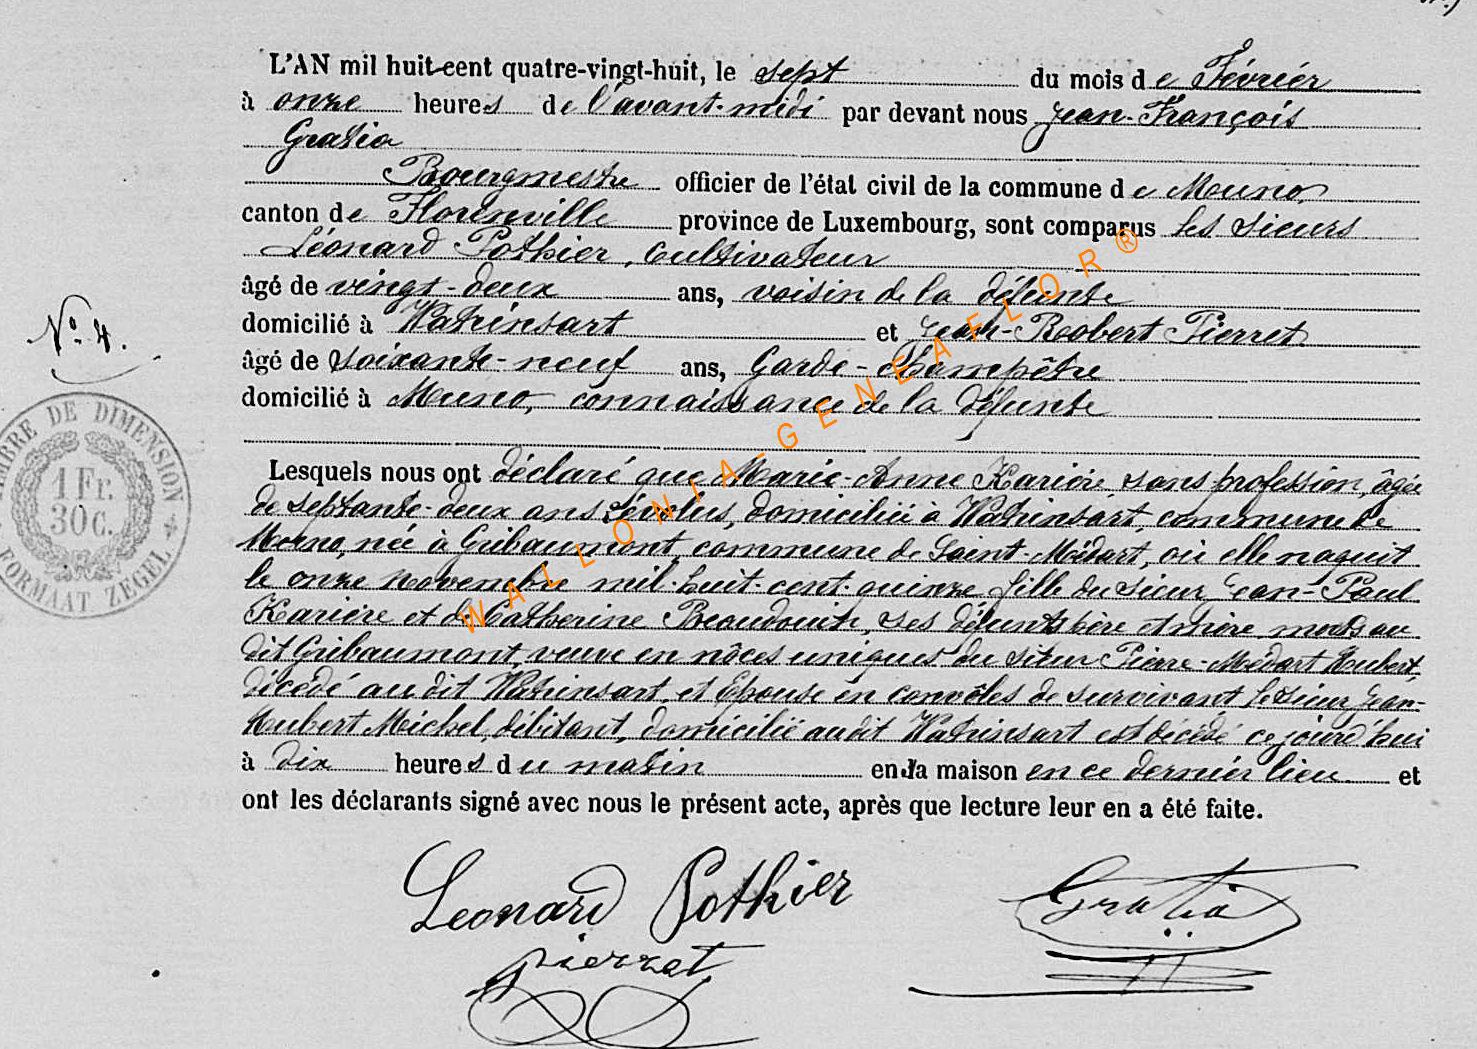 L'AN mil huit-cent quatre-vingt-huit, le sept du mois de Février
à onze heures de l'avant-midi par devant nous Jean-François
Gratia
Bourgmestre officier de l'état civil de la commune de Muno,
canton de Florenville province de Luxembourg, sont comparus les sieurs
Léonard Pothier, cultivateur
âgé de vingt-deux ans, voisin de la défunte
domicilié à Watrinsart et Jean-Robert Pierret
âgé de soixante-neuf ans, Garde-Champêtre
domicilié à Muno, connaissance de la défunte
N° 4.
TIMBRE DE DIMENSION
1 Fr.
30 C.
FORMAAT ZEGEL
Lesquels nous ont déclaré que Marie-Anne Karière, sans profession, âgée
de septante-deux ans révolus, domiciliée à Watrinsart, commune de
Muno, née à Gribaumont, commune de Saint-Médart, où elle naquit
le onze novembre mil-huit-cent-quinze, fille du sieur Jean-Paul
Karière et de Catherine Beaudouin, ses défunts père et mère, morts au
dit Gribaumont, veuve en nôces uniques du sieur Pierre-Médart Hubert,
décédé au dit Watrinsart, et Epouse en convôles de survivant le sieur Jean-
Hubert Michel, débitant, domicilié audit Watrinsart est décédé ce jourd'hui
à dix heures du matin en sa maison en ce dernier lieu et
ont les déclarants signé avec nous le présent acte, après que lecture leur en a été faite.
Leonard Pothier
Gratia
Pierret
WALLONIA-GENEAFLOR®